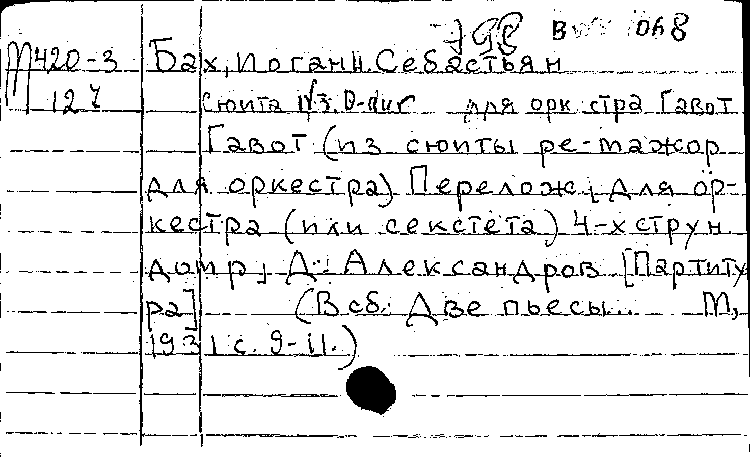 798 BWV 1068
М420-3 Бах, Иоганн Себастьян
127 Сюита №3. D-dur для оркестра Гавот
Гавот (из сюиты ре-мажор
для оркестра) Перелож. для ор-
кестра (или секстета) 4-хструн
домр Д. Александров [Партиту
ра] (В сб: Две пьесы... М,
1931 с. 9-11.)